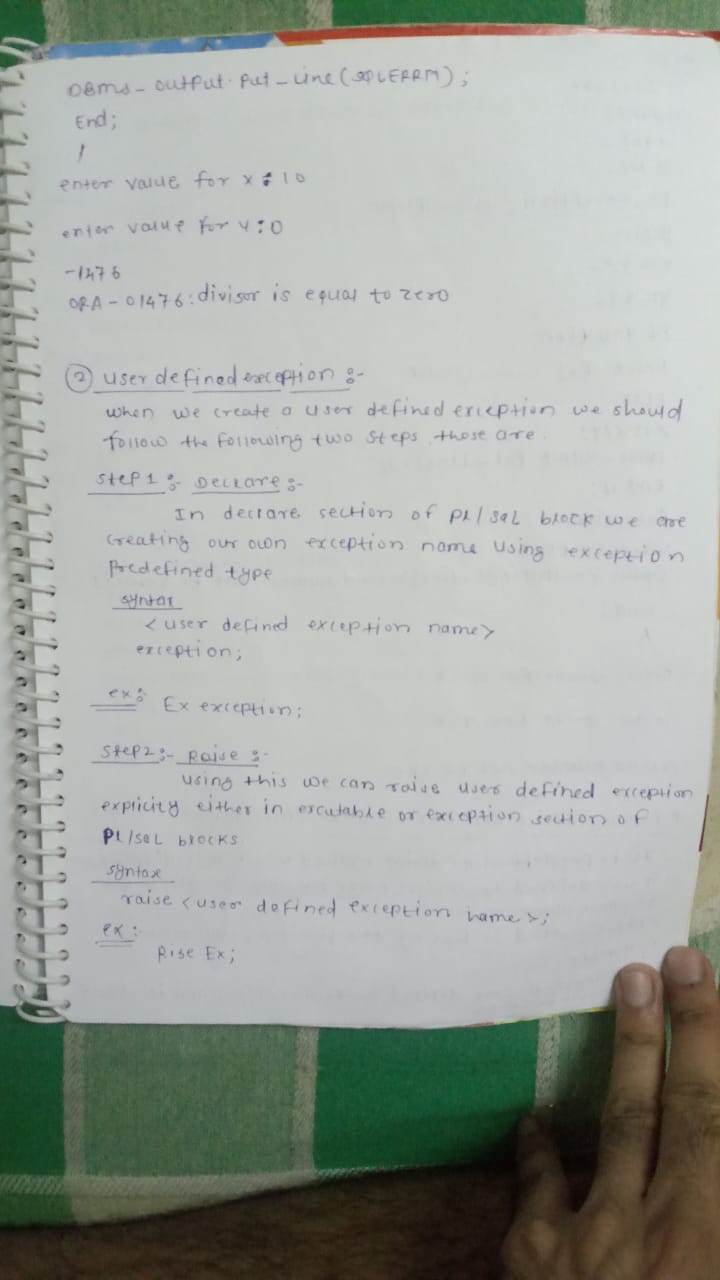 DBms - output. Put - Line (SQLERRM);
End;
/
enter value for x : 10
enter value for y : 0
-1476
ORA - 01476 : divisor is equal to zero
② user defined exception :-
when we create a user defined exception we should
follow the following two steps those are.
step 1 :- Declare :-
In declare section of Pl/sqL block we are
creating our own exception name using exception
Predefined type
syntax
<user defined exception name>
exception;
ex : Ex exception;
step 2 :- Raise :-
using this we can raise user defined exception
explicity either in excutable or exception section of
Pl/sqL blocks
syntax
raise <user defined exception name>;
ex :
Rise Ex;